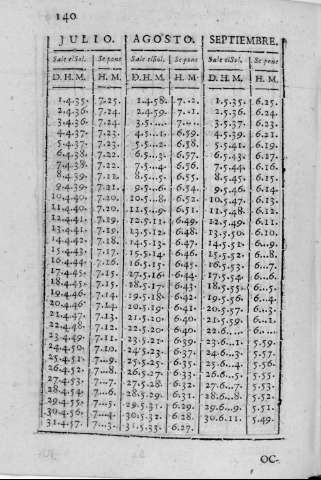 140
JULIO. AGOSTO. SEPTIEMBRE.
Sale el Sol. Se pone Sale el Sol. Se pone Sale el Sol. Se pone
D. H. M. H. M. D. H. M. H. M. D. H. M. H. M.
1.4.35. 7.25. 1.4.58. 7...2. 1.5.35. 6.25.
2.4.36. 7.24. 2.4.59. 7...1. 2.5.36. 6.24.
3.4.36. 7.24. 3.5.... 7.... 3.5.37. 6.23.
4.4.37. 7.23. 4.5...1. 6.59. 4.5.39. 6.21.
5.4.37. 7.23. 5.5...2. 6.58. 5.5.41. 6.19.
6.4.38. 7.22. 6.5...3. 6.57. 6.5.43. 6.17.
7.4.38. 7.22. 7.5...4. 6.56. 7.5.44. 6.16.
8.4.39. 7.21. 8.5...5. 6.55. 8.5.45. 6.15.
9.4.39. 7.21. 9.5...6. 6.54. 9.5.46. 6.14.
10.4.40. 7.20. 10.5...8. 6.52. 10.5.47. 6.13.
11.4.40. 7.20. 11.5...9. 6.51. 11.5.48. 6.12.
12.4.41. 7.19. 12.5.11. 6.49. 12.5.49. 6.11.
13.4.41. 7.19. 13.5.12. 6.48. 13.5.50. 6.10.
14.4.42. 7.18. 14.5.13. 6.47. 14.5.51. 6...9.
15.4.43. 7.17. 15.5.14. 6.46. 15.5.52. 6...8.
16.4.44. 7.16. 16.5.15. 6.45. 16.5.53. 6...7.
17.4.45. 7.15. 27.5.16. 6.44. 17.5.54. 6...6.
18.4.45. 7.15. 28.5.17. 6.43. 18.5.55. 6...5.
19.4.46. 7.14. 19.5.18. 6.42. 19.5.56. 6...4.
20.4.46. 7.14. 20.5.19. 6.41. 20.5.57. 6...3.
21.4.47. 7.13. 21.5.20. 6.40. 21.5.59. 6...1.
22.4.48. 7.12. 22.5.20. 6.40. 22.6.... 6....
23.4.49. 7.11. 23.5.21. 6.39. 23.6...1. 5.59.
24.4.50. 7.10. 24.5.23. 6.37. 24.6...3. 5.57.
25.4.51. 7...9. 25.5.25. 6.35. 25.6...4. 5.56.
26.4.52. 7...8. 26.5.27. 6.33. 26.6...5. 5.55.
27.4.53. 7...7. 27.5.28. 6.32. 27.6...7. 5.53.
28.4.54. 7...6. 28.5.29. 6.31. 28.6...8. 5.52.
29.4.55. 7...5. 29.5.31. 6.29. 29.6...9. 5.51.
30.4.56. 7...4. 30.5.32. 6.28. 30.6.11. 5.49.
31.4.57. 7...3. 31.5.33. 6.27.
OC-